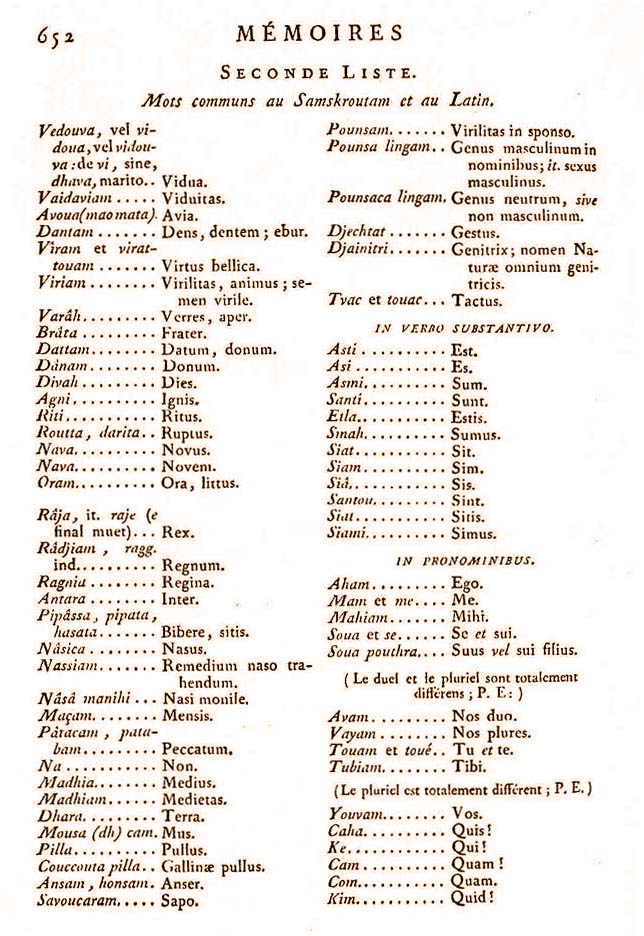 652
MÉMOIRES
SECONDE LISTE.
Mots communs au Samskroutam et au Latin.
Vedouva, vel vi-
doua, vel vidou-
va : de vi, sine,
dhava, marito.. Vidua.
Vaidaviam ..... Viduitas.
Avoua (mao mata). Avia.
Dantam ....... Dens, dentem ; ebur.
Viram et virat-
touam ....... Virtus bellica.
Viriam ........ Virilitas, animus ; se-
men virile.
Varâh......... Verres, aper.
Brâta ......... Frater.
Dattam........ Datum, donum.
Dânam........ Donum.
Divah ........ Dies.
Agni.......... Ignis.
Riti........... Ritus.
Routta, darita.. Ruptus.
Nava.......... Novus.
Nava.......... Novem.
Oram......... Ora, littus.
Râja, it. raje (e
final muet)... Rex.
Râdjiam , ragg.
ind.......... Regnum.
Ragnia ........ Regina.
Antara ........ Inter.
Pipâssa, pipata,
hasata....... Bibere, sitis.
Nâsica ........ Nasus.
Nassiam....... Remedium naso tra-
hendum.
Nâsâ manihi ... Nasi monile.
Maçam........ Mensis.
Pâracam , pata-
bam......... Peccatum.
Na ........... Non.
Madhia........ Medius.
Madhiam...... Medietas.
Dhara......... Terra.
Mousa (dh) cam. Mus.
Pilla.......... Pullus.
Couccouta pilla.. Gallinæ pullus.
Ansam , honsam. Anser.
Savoucaram..... Sapo.
Pounsam....... Virilitas in sponso.
Pounsa lingam.. Genus masculinum in
nominibus; it. sexus
masculinus.
Pounsaca lingam. Genus neutrum, sive
non masculinum.
Djechtat ....... Gestus.
Djainitri....... Genitrix; nomen Na-
turæ omnium geni-
tricis.
Tvac et touac... Tactus.
IN VERBO SUBSTANTIVO.
Asti .......... Est.
Asi ........... Es.
Asmi.......... Sum.
Santi.......... Sunt.
Etla.......... Estis.
Smah......... Sumus.
Siat........... Sit.
Siam.......... Sim.
Siâ........... Sis.
Santou......... Sint.
Siat........... Sitis.
Siami.......... Simus.
IN PRONOMINIBUS.
Aham......... Ego.
Mam et me.... Me.
Mahiam....... Mihi.
Soua et se...... Se et sui.
Soua pouthra.... Suus vel sui filius.
( Le duel et le pluriel sont totalement
différens ; P. E: )
Avam......... Nos duo.
Vayam ........ Nos plures.
Touam et toué.. Tu et te.
Tubiam........ Tibi.
(Le pluriel est totalement différent ; P. E. )
Youvam........ Vos.
Caha.......... Quis!
Ke............ Qui!
Cam .......... Quam !
Com.......... Quam.
Kim........... Quid!